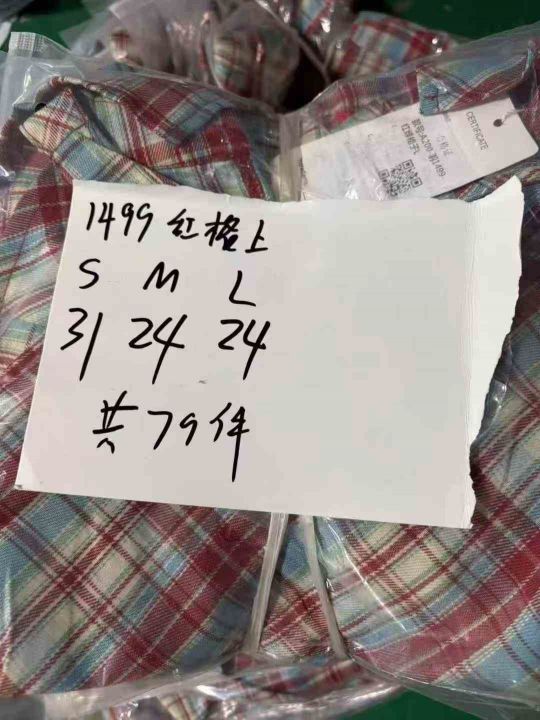 1499 红格上
S M L
31 24 24
共79件
CERTIFICATE
合格证